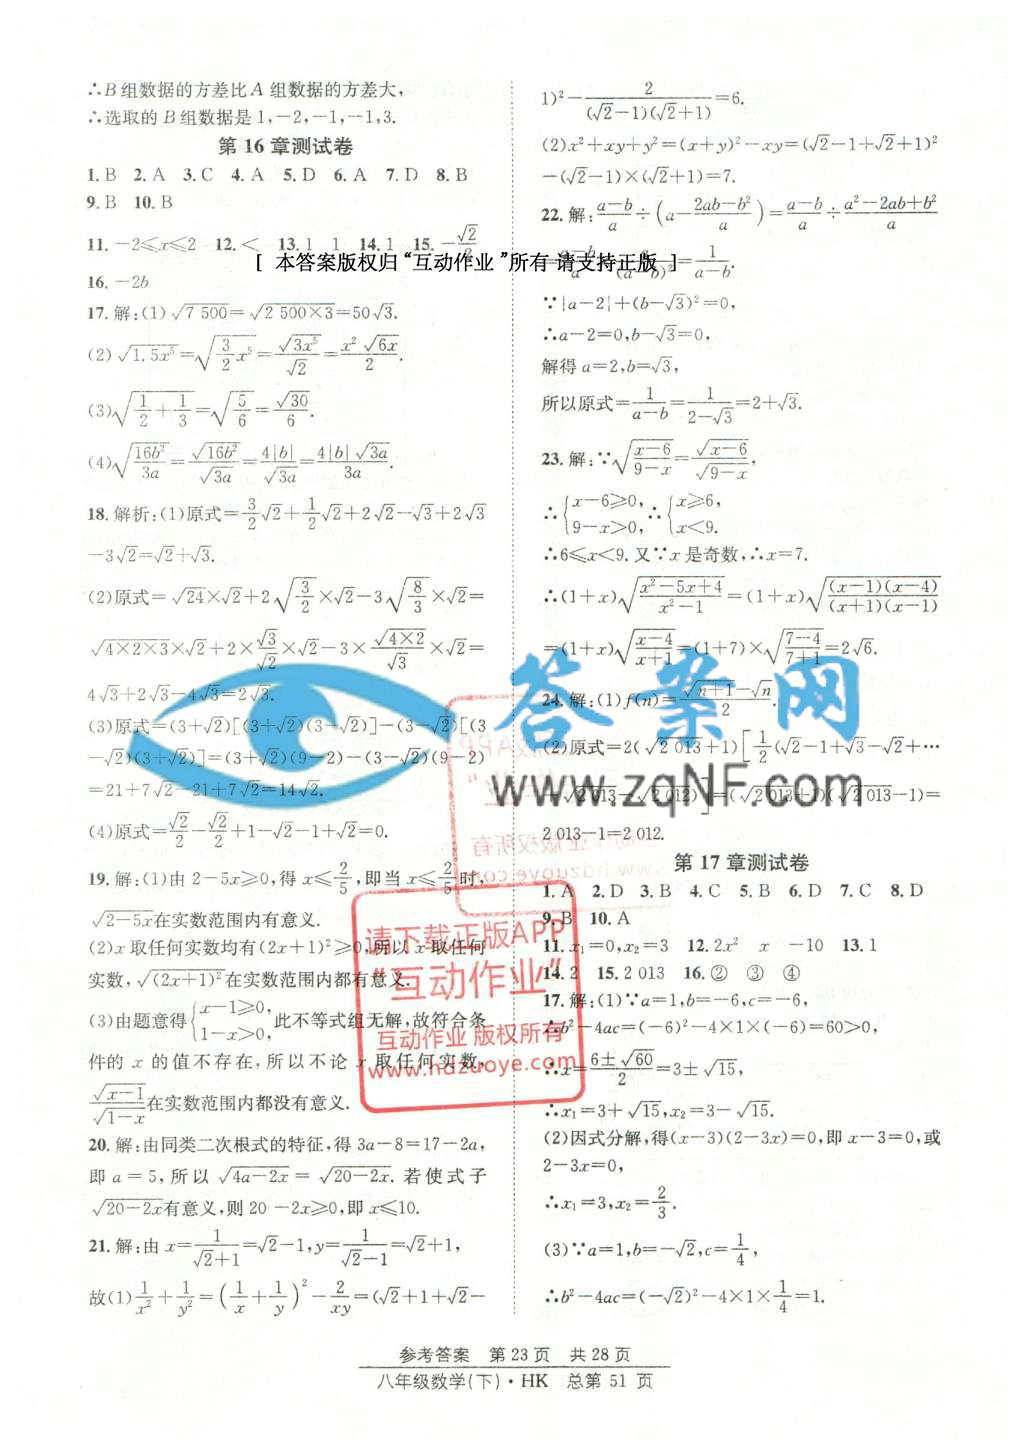 ∴B组数据的方差比A组数据的方差大,
∴选取的B组数据是1,-2,-1,-1,3.
第16章测试卷
1. B 2. A 3. C 4. A 5. D 6. A 7. D 8. B
9. B 10. B
11. -2≤x≤2 12. < 13. 1 1 14. 1 15. -√2/2
16. -2b
17. 解:(1)√7 500=√2 500×3=50√3.
(2)√1.5x⁵=√(3/2)x⁵=√3x⁵/√2=x²√6x/2.
(3)√(1/2+1/3)=√(5/6)=√30/6.
(4)√(16b²/3a)=√16b²/√3a=4|b|/√3a=4|b|√3a/3a.
18. 解析:(1)原式=3/2√2+1/2√2+2√2-√3+2√3
-3√2=√2+√3.
(2)原式=√24×√2+2√(3/2)×√2-3√(8/3)×√2=
√4×2×3×√2+2×√3/√2×√2-3×√4×2/√3×√2=
4√3+2√3-4√3=2√3.
(3)原式=(3+√2)[(3+√2)(3-√2)]-(3-√2)[(3
-√2)(3+√2)]=(3+√2)(9-2)-(3-√2)(9-2)
=21+7√2-21+7√2=14√2.
(4)原式=√2/2-√2/2+1-√2-1+√2=0.
19. 解:(1)由2-5x≥0,得x≤2/5,即当x≤2/5时,
√2-5x在实数范围内有意义.
(2)x取任何实数均有(2x+1)²≥0,所以x取任何
实数,√(2x+1)²在实数范围内都有意义.
(3)由题意得{x-1≥0, 1-x>0,此不等式组无解,故符合条
件的x的值不存在,所以不论x取任何实数,
√x-1/√1-x在实数范围内都没有意义.
20. 解:由同类二次根式的特征,得3a-8=17-2a,
即a=5,所以√4a-2x=√20-2x.若使式子
√20-2x有意义,则20-2x≥0,即x≤10.
21. 解:由x=1/(√2+1)=√2-1,y=1/(√2-1)=√2+1,
故(1)1/x²+1/y²=(1/x+1/y)²-2/xy=(√2+1+√2-
1)²-2/((√2-1)(√2+1))=6.
(2)x²+xy+y²=(x+y)²-xy=(√2-1+√2+1)²
-(√2-1)×(√2+1)=7.
22. 解:(a-b)/a÷(a-(2ab-b²)/a)=(a-b)/a÷(a²-2ab+b²)/a
[ 本答案版权归“互动作业”所有 请支持正版 ]
=(a-b)/a·a/(a-b)²=1/(a-b).
∵|a-2|+(b-√3)²=0,
∴a-2=0,b-√3=0,
解得a=2,b=√3,
所以原式=1/(a-b)=1/(2-√3)=2+√3.
23. 解:∵√((x-6)/(9-x))=√x-6/√9-x,
∴{x-6≥0, 9-x>0,∴{x≥6, x<9.
∴6≤x<9.又∵x是奇数,∴x=7.
∴(1+x)√((x²-5x+4)/(x²-1))=(1+x)√((x-1)(x-4)/((x+1)(x-1)))
=(1+x)√((x-4)/(x+1))=(1+7)×√((7-4)/(7+1))=2√6.
24. 解:(1)f(n)=(√n+1-√n)/2.
(2)原式=2(√2 013+1)[1/2(√2-1+√3-√2+…
+√2 013-√2 012)]=(√2 013+1)(√2 013-1)=
2 013-1=2 012.
第17章测试卷
1. A 2. D 3. B 4. C 5. B 6. D 7. C 8. D
9. B 10. A
11. x₁=0,x₂=3 12. 2x² x -10 13. 1
14. 2 15. 2 013 16. ② ③ ④
17. 解:(1)∵a=1,b=-6,c=-6,
∴b²-4ac=(-6)²-4×1×(-6)=60>0,
∴x=(6±√60)/2=3±√15,
∴x₁=3+√15,x₂=3-√15.
(2)因式分解,得(x-3)(2-3x)=0,即x-3=0,或
2-3x=0,
∴x₁=3,x₂=2/3.
(3)∵a=1,b=-√2,c=1/4,
∴b²-4ac=(-√2)²-4×1×1/4=1.
答案网
www.zqNF.com
请下载正版APP
“互动作业”
互动作业 版权所有
www.hdzuoye.com
参考答案 第23页 共28页
八年级数学(下)·HK 总第51页